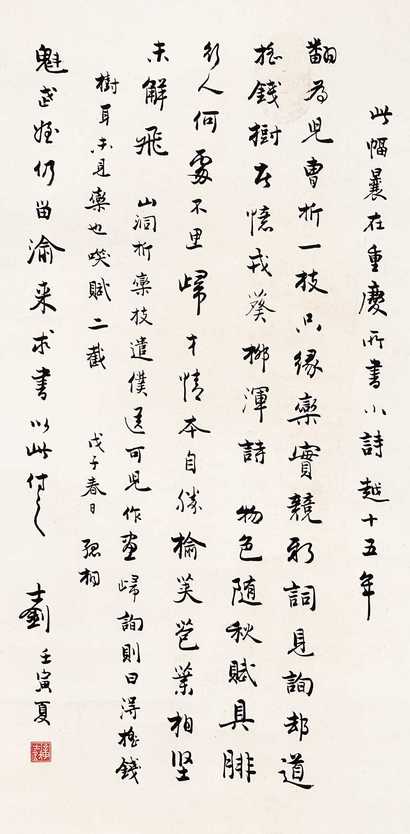 此幅曩在重慶所書小詩越十五年
翻為兒曹折一枝只緣欒實競新詞見詢却道
搖錢樹憶戎葵柳渾詩 物色隨秋賦具腓
行人何處不思歸才情本自勝榆莢苞葉相堅
未解飛 山洞折欒枝遣僕送可兒作畫歸詢則曰得搖錢
樹耳未見欒也咲賦二截 戊子春日 孤桐
魁武姪仍留渝來求書以此付之 士釗 壬寅夏